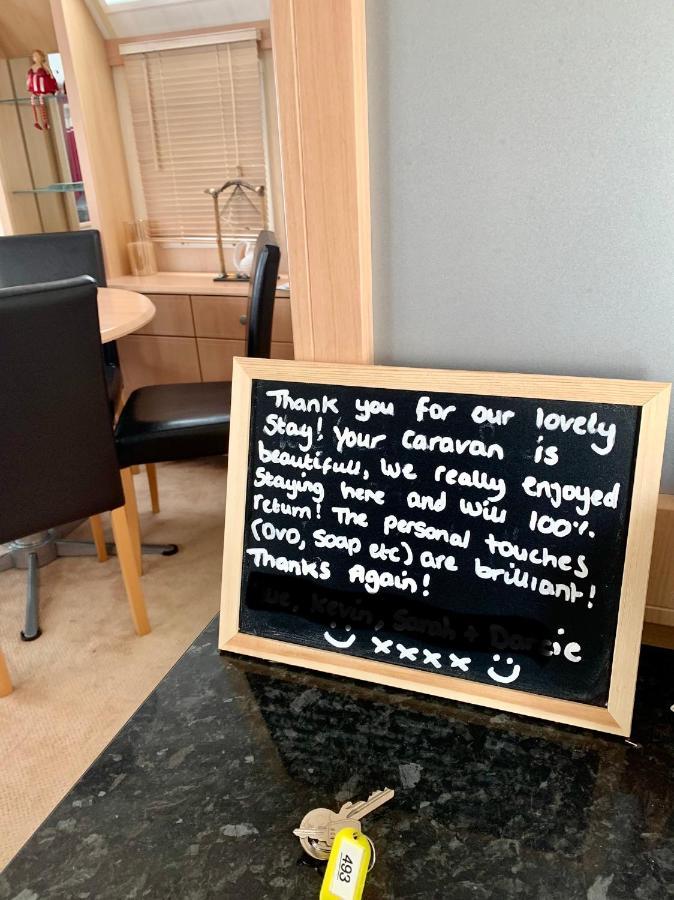 Thank you for our lovely
Stay! Your caravan is
beautifull, we really enjoyed
Staying here and will 100%
return! The personal touches
(DVD, soap etc) are brilliant!
Thanks Again!
xxxx
493